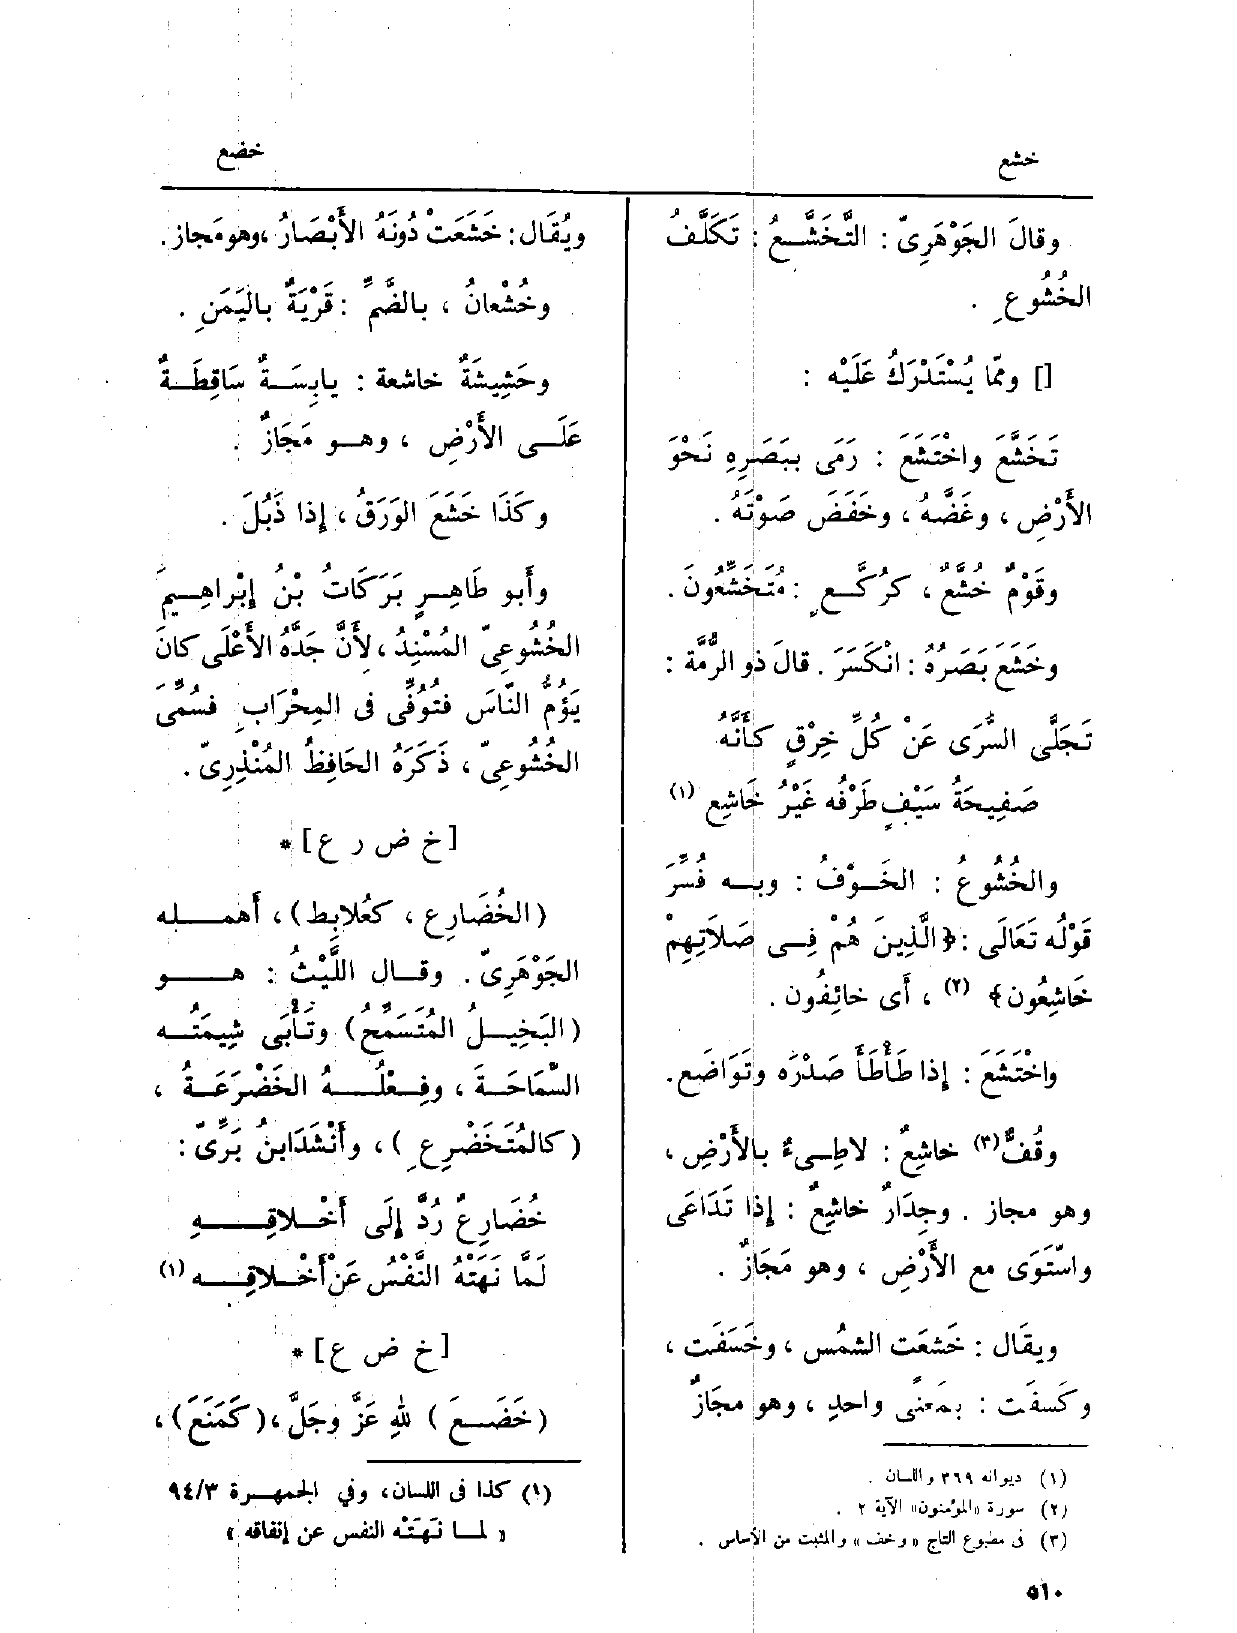 خشع
خضع
وقالَ الجَوْهَرِىّ : التَّخَشُّعُ : تَكَلُّفُ
الخُشُوعِ .
[] وممّا يُسْتَدْرَكُ عَلَيْه :
تَخَشَّعَ واخْتَشَعَ : رَمَى بِبَصَرِهِ نَحْوَ
الأَرْضِ ، وغَضَّهُ ، وخَفَضَ صَوْتَهُ .
وقَوْمٌ خُشَّعٌ ، كرُكَّعٍ : مُتَخَشِّعُونَ .
وخَشَعَ بَصَرُهُ : انْكَسَرَ . قالَ ذو الرُّمَّة :
تَجَلَّى السُّرَى عَنْ كُلِّ خِرْقٍ كأَنَّهُ
صَفِيحَةُ سَيْفٍ طَرْفُه غَيْرُ خَاشِعِ (١)
والخُشُوعُ : الخَوْفُ : وبه فُسِّرَ
قَوْلُه تَعَالَى : ﴿الَّذِينَ هُمْ فِى صَلَاتِهِمْ
خَاشِعُون﴾ (٢) ، أَى خائِفُون .
واخْتَشَعَ : إذا طَأْطَأَ صَدْرَه وتَوَاضَع.
وقُفٌّ (٣) خاشِعٌ : لاطِىءٌ بالأَرْضِ ،
وهو مجاز . وجِدَارٌ خاشِعٌ : إذا تَدَاعَى
واسْتَوَى مع الأَرْضِ ، وهو مَجَازٌ .
ويقَال : خَشَعَت الشمْس ، وخَسَفَت ،
وكَسفَت : بمَعنًى واحدٍ ، وهو مجَازٌ
(١) ديوانه ٣٦٩ واللسان .
(٢) سورة «المؤمنون» الآية ٢ .
(٣) فى مطبوع التاج «وخف» والمثبت من الأساس .
ويُقَال : خَشَعَتْ دُونَهُ الأَبْصَارُ ، وهو مَجاز.
وخُشْعانُ ، بالضَّمِّ : قَرْيَةٌ باليَمَنِ .
وحَشِيشَةٌ خاشعة : يابِسَةٌ سَاقِطَةٌ
عَلَى الأَرْضِ ، وهو مَجَازٌ .
وكَذَا خَشَعَ الوَرَقُ ، إذا ذَبُلَ .
وأَبو طَاهِرٍ بَرَكَاتُ بْنُ إِبْراهِيمَ
الخُشُوعِىّ المُسْنِدُ ، لأَنَّ جَدَّهُ الأَعْلَى كانَ
يَؤُمُّ النَّاسَ فتُوُفِّى فى المِحْرَابِ فسُمِّىَ
الخُشُوعِىّ ، ذَكَرَهُ الحَافِظُ المُنْذِرِىّ .
[خ ض ر ع] *
(الخُضَارِع ، كعُلَابِط) ، أَهمله
الجَوْهَرِىّ . وقال اللَّيْثُ : هو
(البَخِيلُ المُتَسَمِّحُ) وتَأْبَى شِيمَتُه
السَّمَاحَةَ ، وفِعْلُهُ الخَضْرَعَةُ ،
(كالمُتَخَضْرِعِ) ، وأَنْشَدَ ابنُ بَرِّىّ :
خُضَارِعٌ رُدَّ إِلَى أَخْلاقِهِ
لَمَّا نَهَتْهُ النَّفْسُ عَنْ أَخْلاقِهِ (١)
[خ ض ع] *
(خَضَعَ) للهِ عَزَّ وجَلَّ ، (كَمَنَعَ) ،
(١) كذا فى اللسان، وفي الجمهرة ٩٤/٣
«لما نَهَتْه النفس عن إنفاقه»
٥١٠